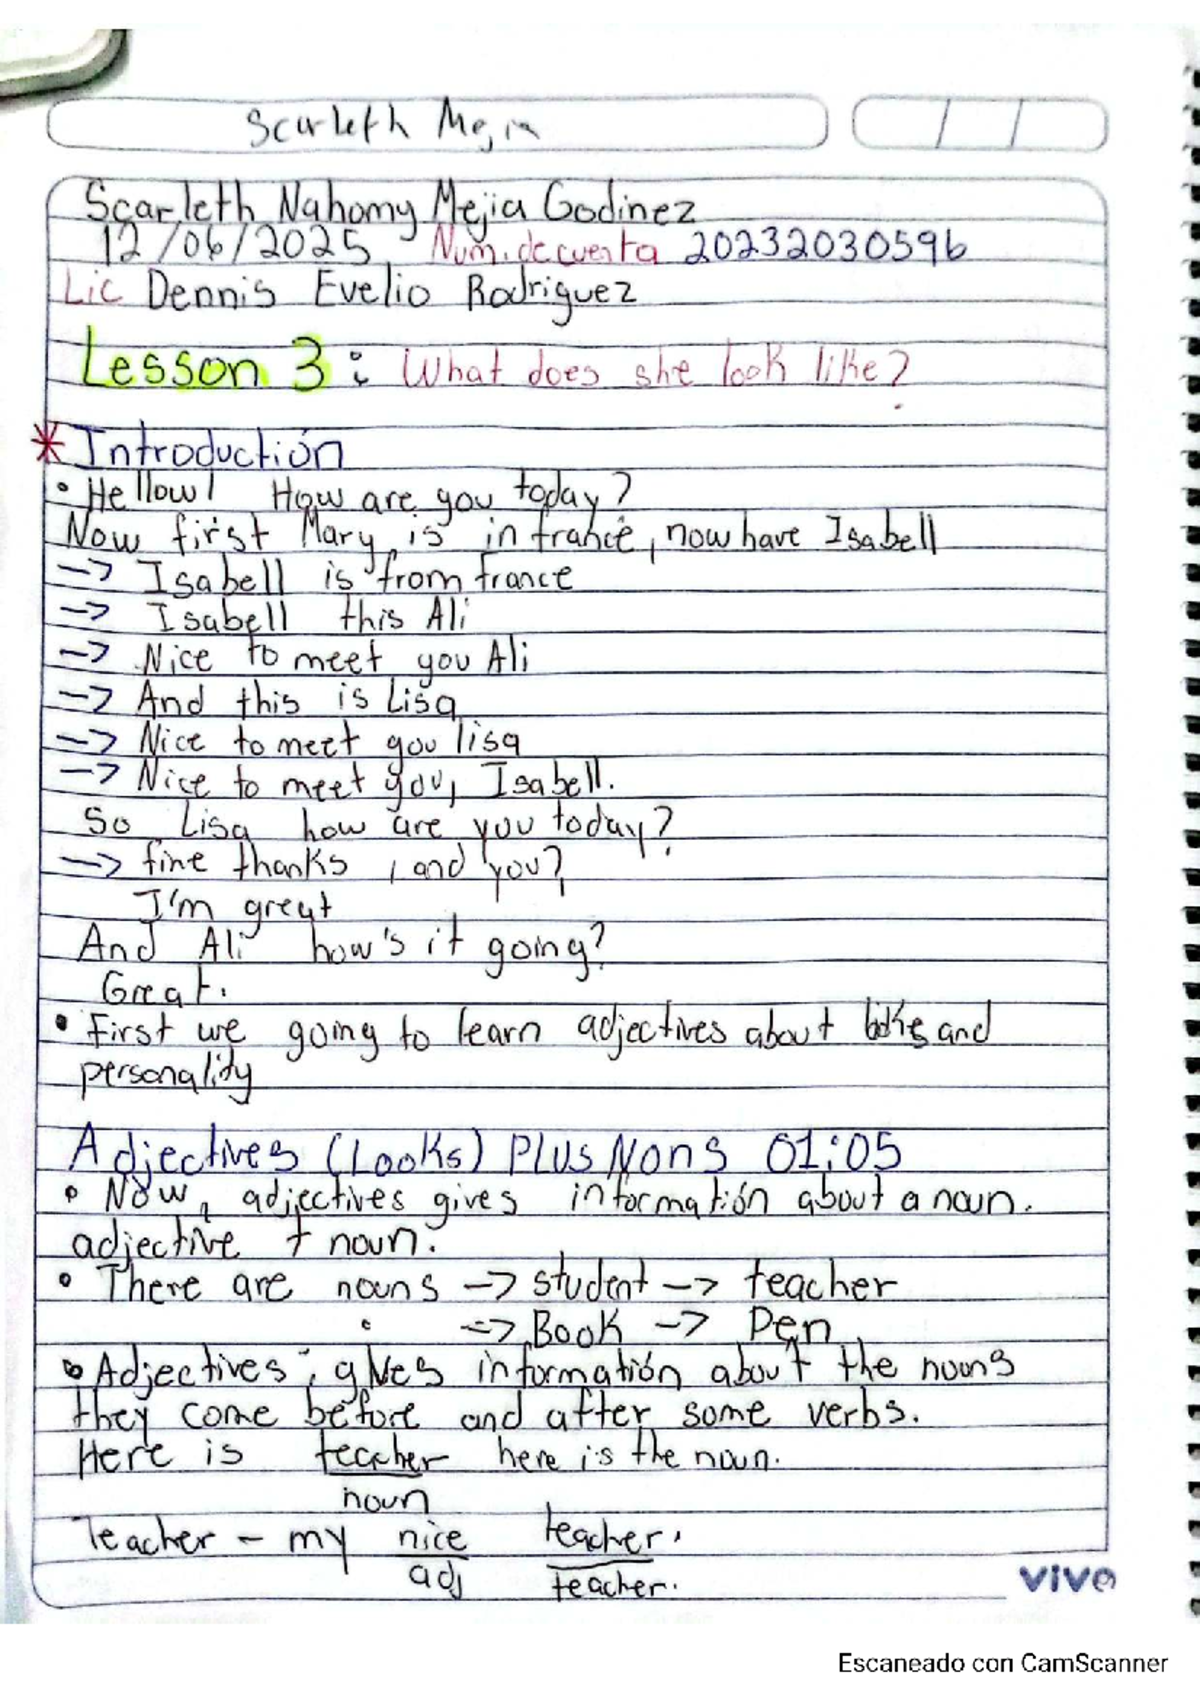 Scarleth Mejia
Scarleth Nahomy Mejia Godinez
12/06/2025 Num. de cuenta 20232030596
Lic Dennis Evelio Rodriguez
Lesson 3: What does she look like?
* Introductión
• Hellow! How are you today?
Now first Mary is in france, now have Isabell
-> Isabell is from france
-> Isabell this Ali
-> Nice to meet you Ali
-> And this is Lisa
-> Nice to meet you lisa
-> Nice to meet you, Isabell.
So Lisa how are you today?
-> fine thanks, and you?
I'm great
And Ali how's it going?
Great.
• First we going to learn adjectives about and
personality
Adjectives (Looks) Plus Nons 01:05
• Now, adjectives gives informatión about a noun.
adjective + noun.
• There are nouns -> student -> teacher
-> Book -> Pen
• Adjectives: gives informatión about the nouns
they come before and after some verbs.
Here is teacher here is the noun.
noun
Teacher - my nice teacher.
adj teacher.
vivo
Escaneado con CamScanner